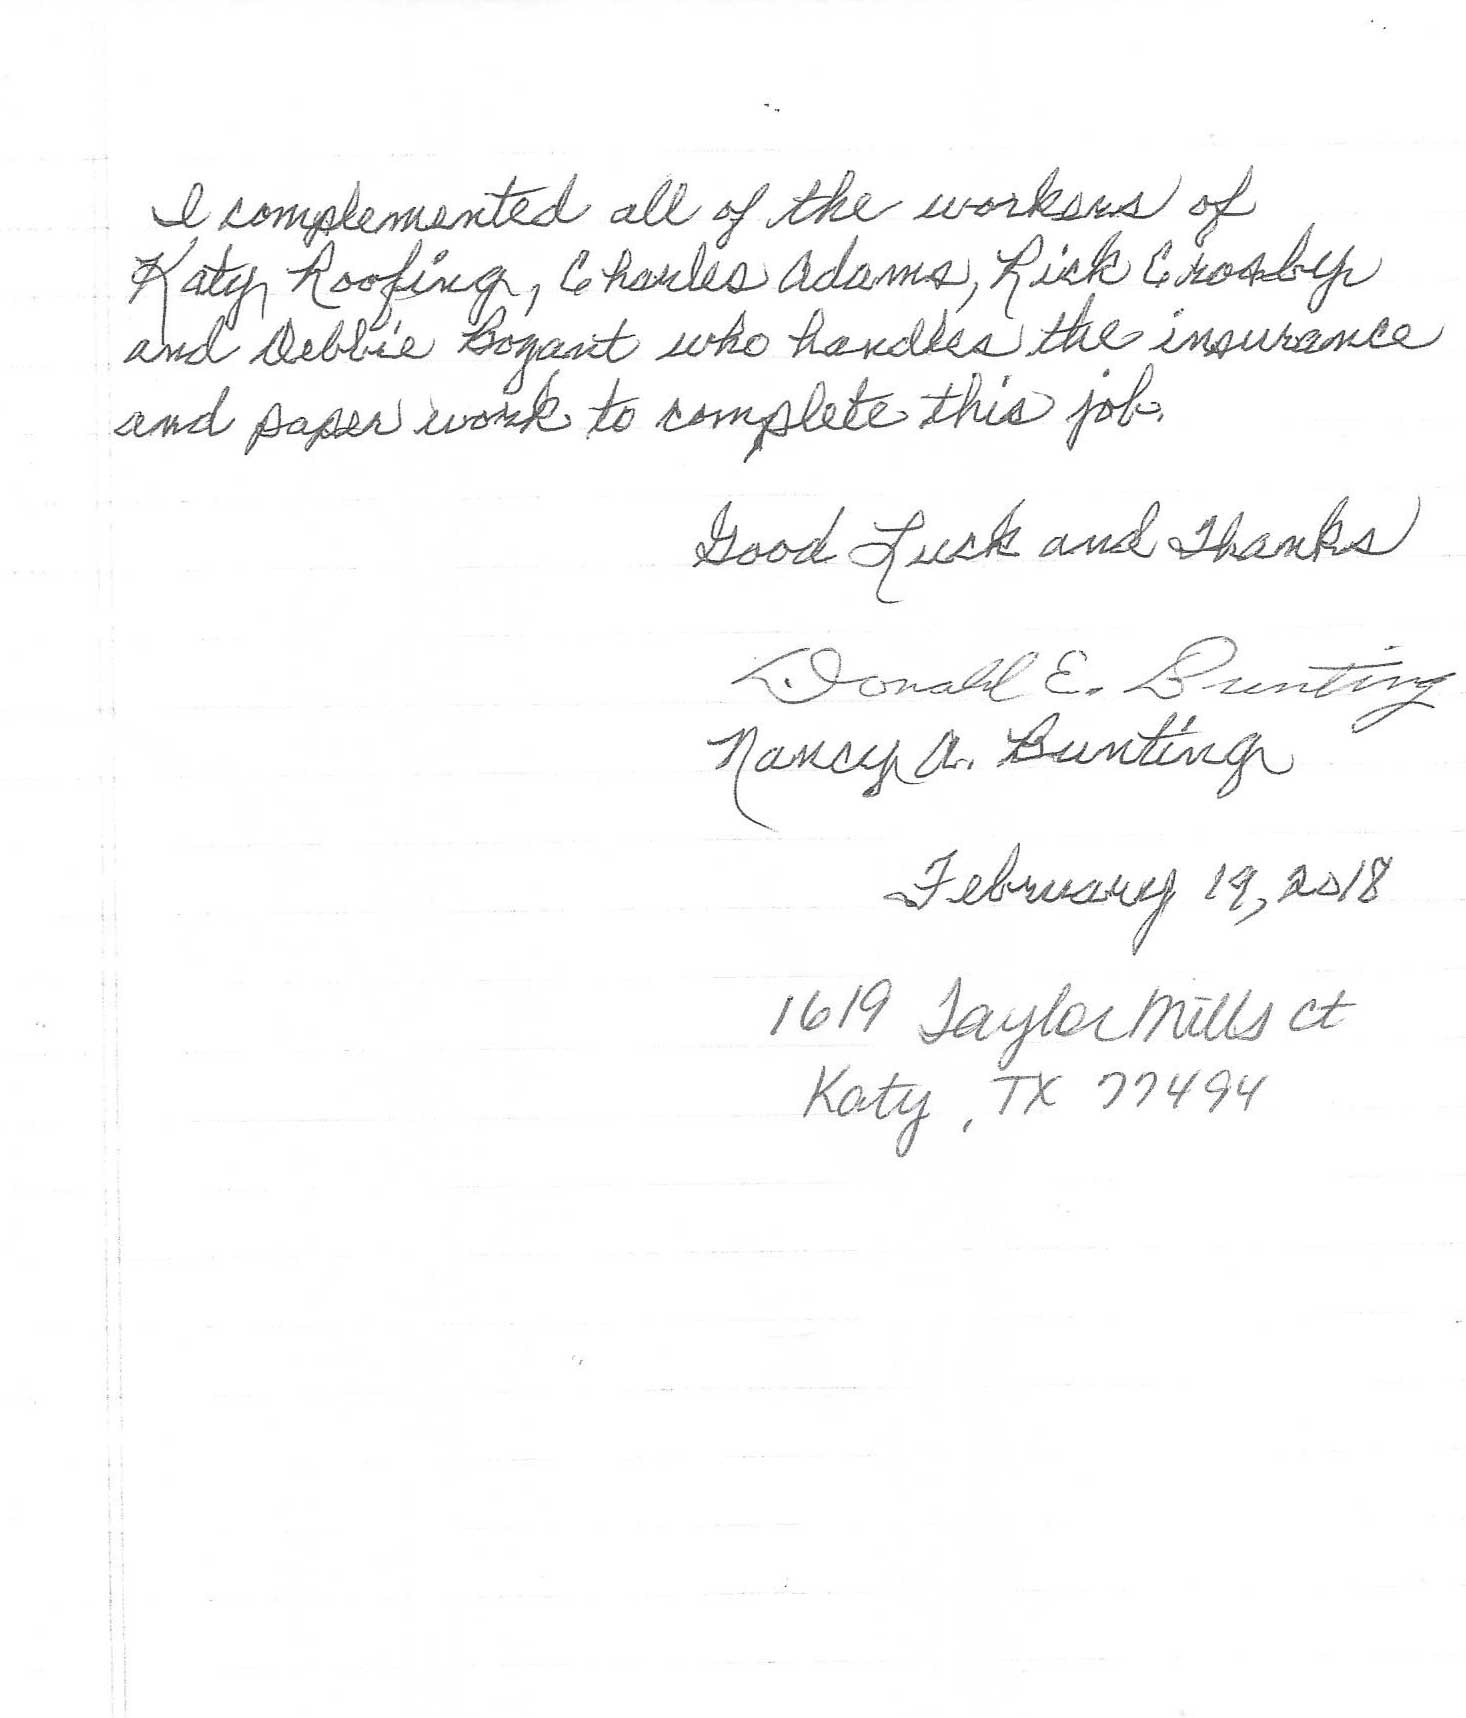 I complemented all of the workers of
Katy Roofing, Charles Adams, Rick Crosby
and Debbie Bozant who handles the insurance
and paper work to complete this job.
Good Luck and Thanks
Donald E. Bunting
Nancy A. Bunting
February 19, 2018
1619 Taylor Mills Ct
Katy, TX 77494